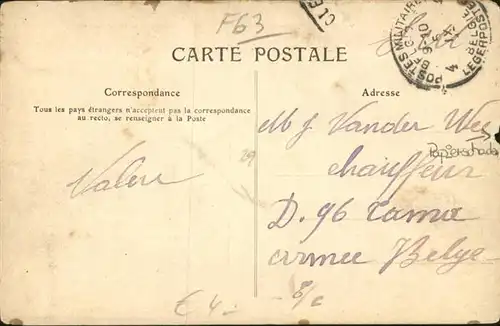 F63
CARTE POSTALE
POSTES MILITAIRES
BELGIQUE
LEGERPOSTERIJ
Correspondance
Adresse
Tous les pays étrangers n'acceptent pas la correspondance
au recto, se renseigner à la Poste
Mr J. Vander Wee
Papierschaden
chauffeur
Valere
D. 96 Tama
armee Belge
E/c
€ 4.-